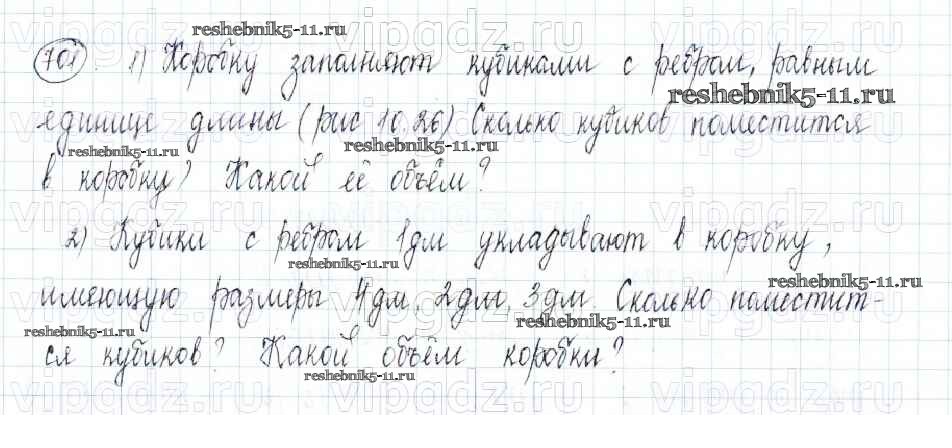 reshebnik5-11.ru
701 1) Коробку заполняют кубиками с ребром, равным
reshebnik5-11.ru
единице длины (рис 10.26) Сколько кубиков поместится
reshebnik5-11.ru reshebnik5-11.ru
в коробку? Какой её объём?
2) Кубики с ребром 1дм укладывают в коробку,
reshebnik5-11.ru reshebnik5-11.ru
имеющую размеры 4дм, 2дм, 3дм. Сколько поместит-
reshebnik5-11.ru reshebnik5-11.ru
ся кубиков? Какой объём коробки?
reshebnik5-11.ru
vipgdz.ru